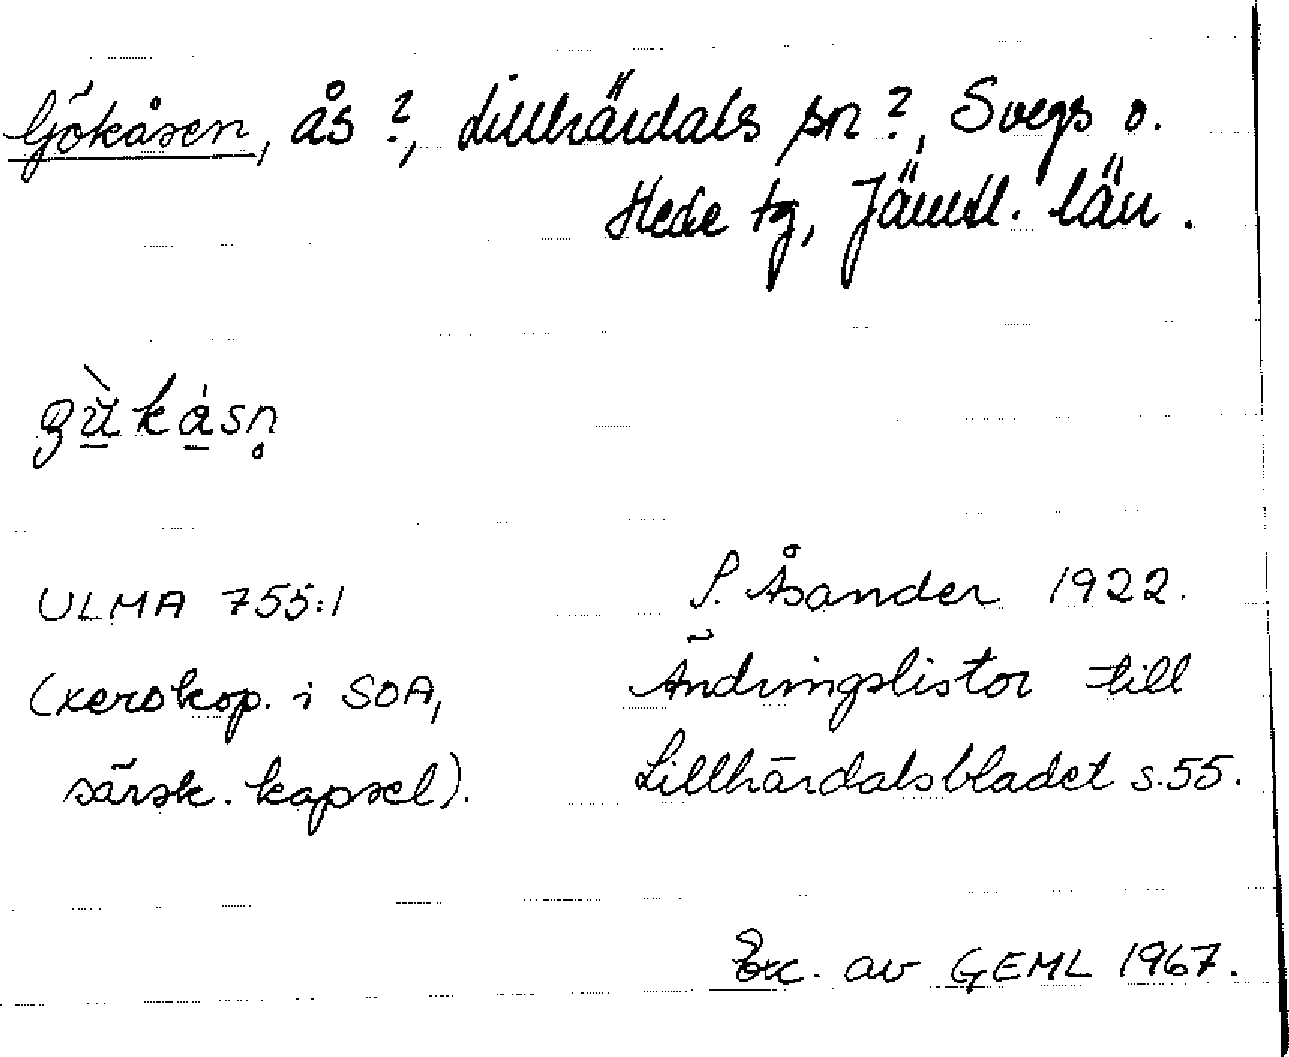 Gökåsen, ås?, Lillhärdals sn?, Svegs o.
Hede tg, Jämtl. län.
gùkásn̥
ULMA 755:1
S. Åsander 1922.
(xerokop. i SOA,
Ändringslistor till
särsk. kapsel).
Lillhärdalsbladet s.55.
Exc. av GEML 1967.